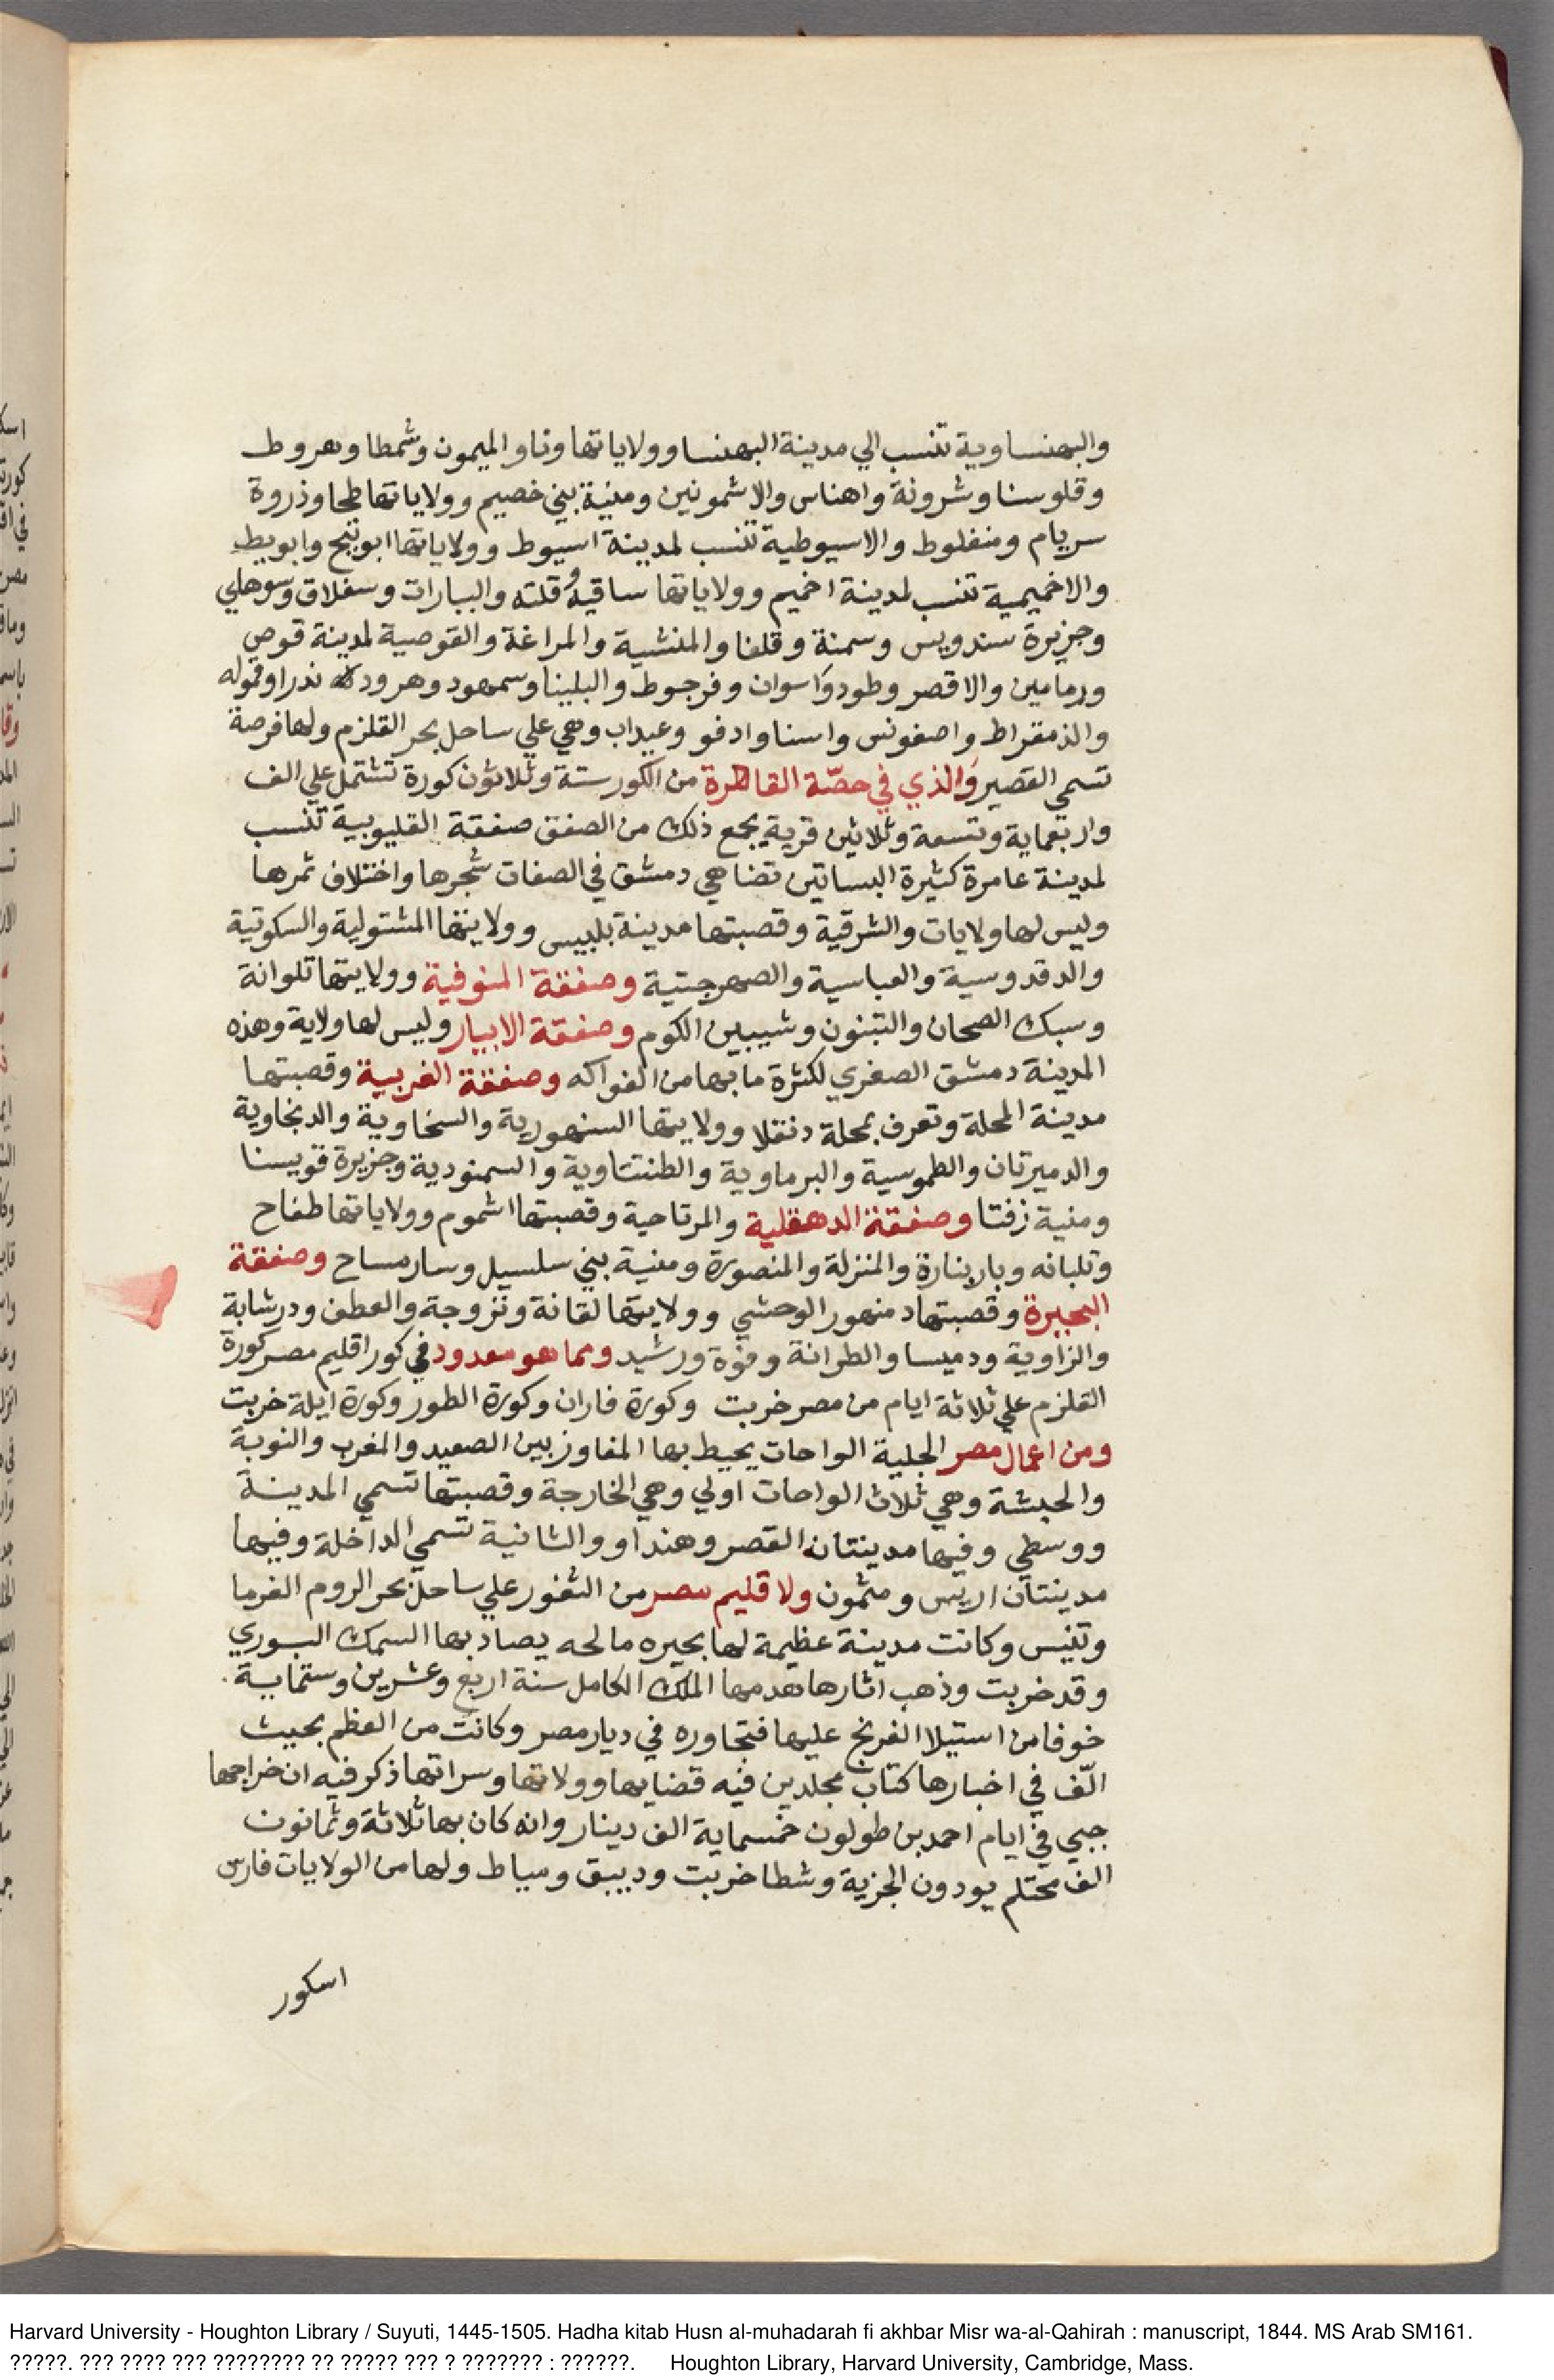 والبهنساوية تنسب الي مدينة البهنسا وولاياتها ونا والميمون وشمطا وهروط
وقلوسنا وشرونة واهناس والاشمونين ومنية بني خصيم وولاياتها طحا وذروة
سريام ومنفلوط والاسيوطية تنسب لمدينة اسيوط وولاياتها ابو تيج وابويط
والاخميمية تنسب لمدينة اخميم وولاياتها ساقية وقلته والببارات وسفلاق وسوهاي
وجزيرة سندويس وسمنة وقلفا والمنشية والمراغة والقوصية لمدينة قوص
ورمامين والاقصر وطود واسوان وفرجوط والبلينا وسمهود وهرود ندرا وقموله
والدمقراط واصفونس واسنا وادفو وعيداب وهي علي ساحل بحر القلزم ولها فرصة
تسمي القصير والذي في حصّة القاهرة من الكور ستة وثلاثون كورة تشتمل علي الف
واربعماية وتسعة وثلاثين قرية يجمع ذلك من الصفق صفقة القليوبية تنسب
لمدينة عامرة كثيرة البساتين تضاهي دمشق في الصفات شجرها واختلاف ثمرها
وليس لها ولايات والشرقية وقصبتها مدينة بلبيس وولايتها المشتولية والسكوتية
والدقدوسية والعباسية والصهرجتية وصفقة المنوفية وولايتها تلوانة
وسبك الضحان والتبنون وشيبين الكوم وصفقة الابيار وليس لها ولاية وهذه
المدينة دمشق الصغري لكثرة ما بها من الفواكه وصفقة الغربية وقصبتها
مدينة المحلة وتعرف بمحلة دنقلا وولايتها السنهورية والسخاوية والدنجاوية
والدميرتان والطموسية والبرماوية والطنتتاوية والسمنودية وجزيرة قويسنا
ومنية زفتا وصفقة الدهقلية والمرتاحية وقصبتها اشموم وولاياتها طفاح
وتلبانه وبارنبارة والمنزلة والمنصورة ومنية بني سلسيل وسارمساح وصفقة
البحيرة وقصبتها دمنهور الوحشي وولايتها لقانة وتزوجة والعطف ودرشابة
والزاوية ودميسا والطرانة وفوّة ورشيد ومما هو معدود في كور اقليم مصر كورة
القلزم علي ثلاثة ايام من مصر خربت وكورة فاران وكورة الطور وكورة ايلة خربت
ومن اعمال مصر الجلية الواحات يحيط بها المفاوز بين الصعيد والمغرب والنوبة
والحبشة وهي ثلاث الواحات اولي وهي الخارجة وقصبتها تسمي المدينة
ووسطي وفيها مدينتان القصر وهنداو والثانية تسمي الداخلة وفيها
مدينتان اريس ومثمون ولاقليم مصر من الثغور علي ساحل بحر الروم الفرما
وتنيس وكانت مدينة عظيمة لها بحيره مالحه يصاد بها السمك البوري
وقد خربت وذهب اثارها هدمها الملك الكامل سنة اربع وعشرين وستماية
خوفا من استيلا الفرنج عليها فتجاوره في ديار مصر وكانت من العظم بحيث
الّف في اخبارها كتاب مجلدين فيه قضاتها وولاتها وسراتها ذكر فيه ان خراجها
جبي في ايام احمد بن طولون خمسماية الف دينار وانه كان بها ثلاثة وثمانون
الف محتلم يودون الجزية وشطا خربت ودبيق ومياط ولها من الولايات فارس
اسكور
Harvard University - Houghton Library / Suyuti, 1445-1505. Hadha kitab Husn al-muhadarah fi akhbar Misr wa-al-Qahirah : manuscript, 1844. MS Arab SM161.
?????. ??? ???? ??? ???????? ?? ????? ??? ? ??????? : ??????. Houghton Library, Harvard University, Cambridge, Mass.